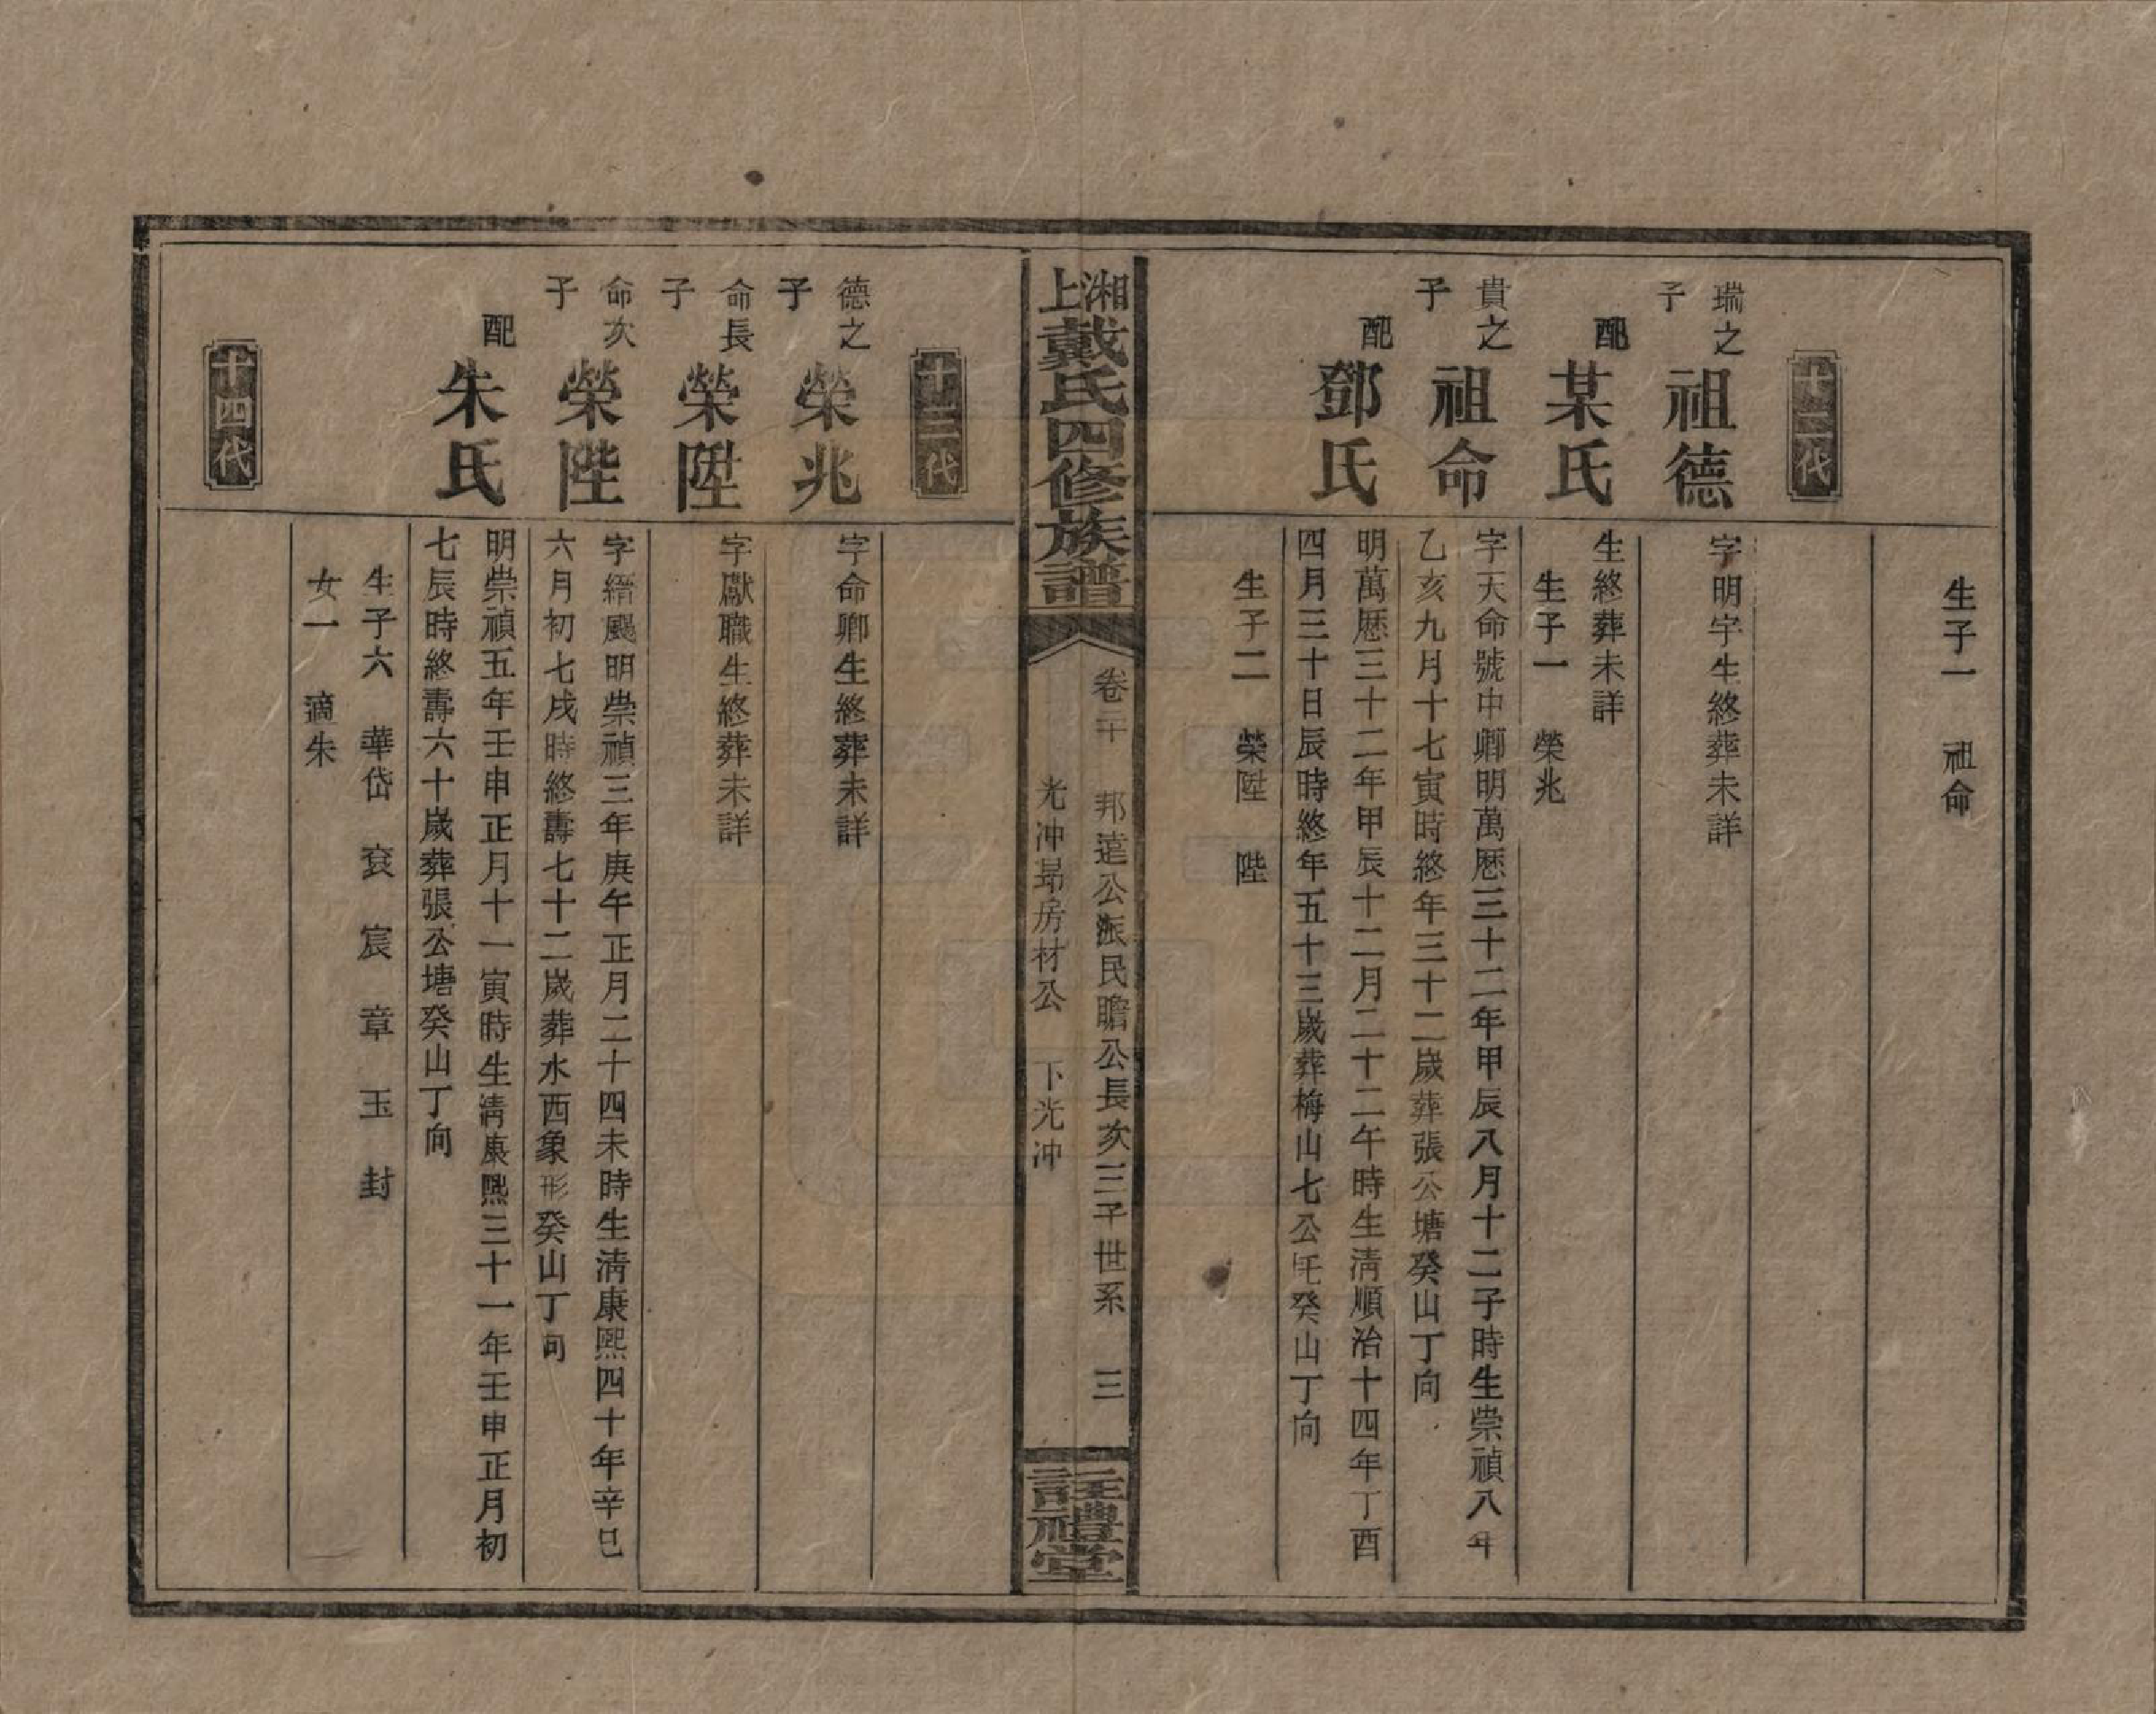 生子一　祖命
十二代
瑞之子　祖德
字明宇生終葬未詳
配　某氏
生終葬未詳
生子一　榮兆
貴之子　祖命
字天命號中卿明萬歷三十二年甲辰八月十二子時生崇禎八年
乙亥九月十七寅時終年三十二歲葬張公塘癸山丁向
配　鄧氏
明萬歷三十二年甲辰十二月二十二午時生清順治十四年丁酉
四月三十日辰時終年五十三歲葬梅山七公𡉏癸山丁向
生子二　榮陞　陛
湘上戴氏四修族譜
卷二十　邦達公派民瞻公長次三子世系　三
光冲昻房材公　下光冲
註禮堂
十三代
德之子　榮兆
字命卿生終葬未詳
命長子　榮陞
字獻職生終葬未詳
命次子　榮陛
字縉颺明崇禎三年庚午正月二十四未時生清康熙四十年辛巳
六月初七戌時終壽七十二歲葬水西象形癸山丁向
配　朱氏
明崇禎五年壬申正月十一寅時生清康熙三十一年壬申正月初
七辰時終壽六十歲葬張公塘癸山丁向
生子六　華岱　袞　宸　章　玉　封
女一　適朱
十四代